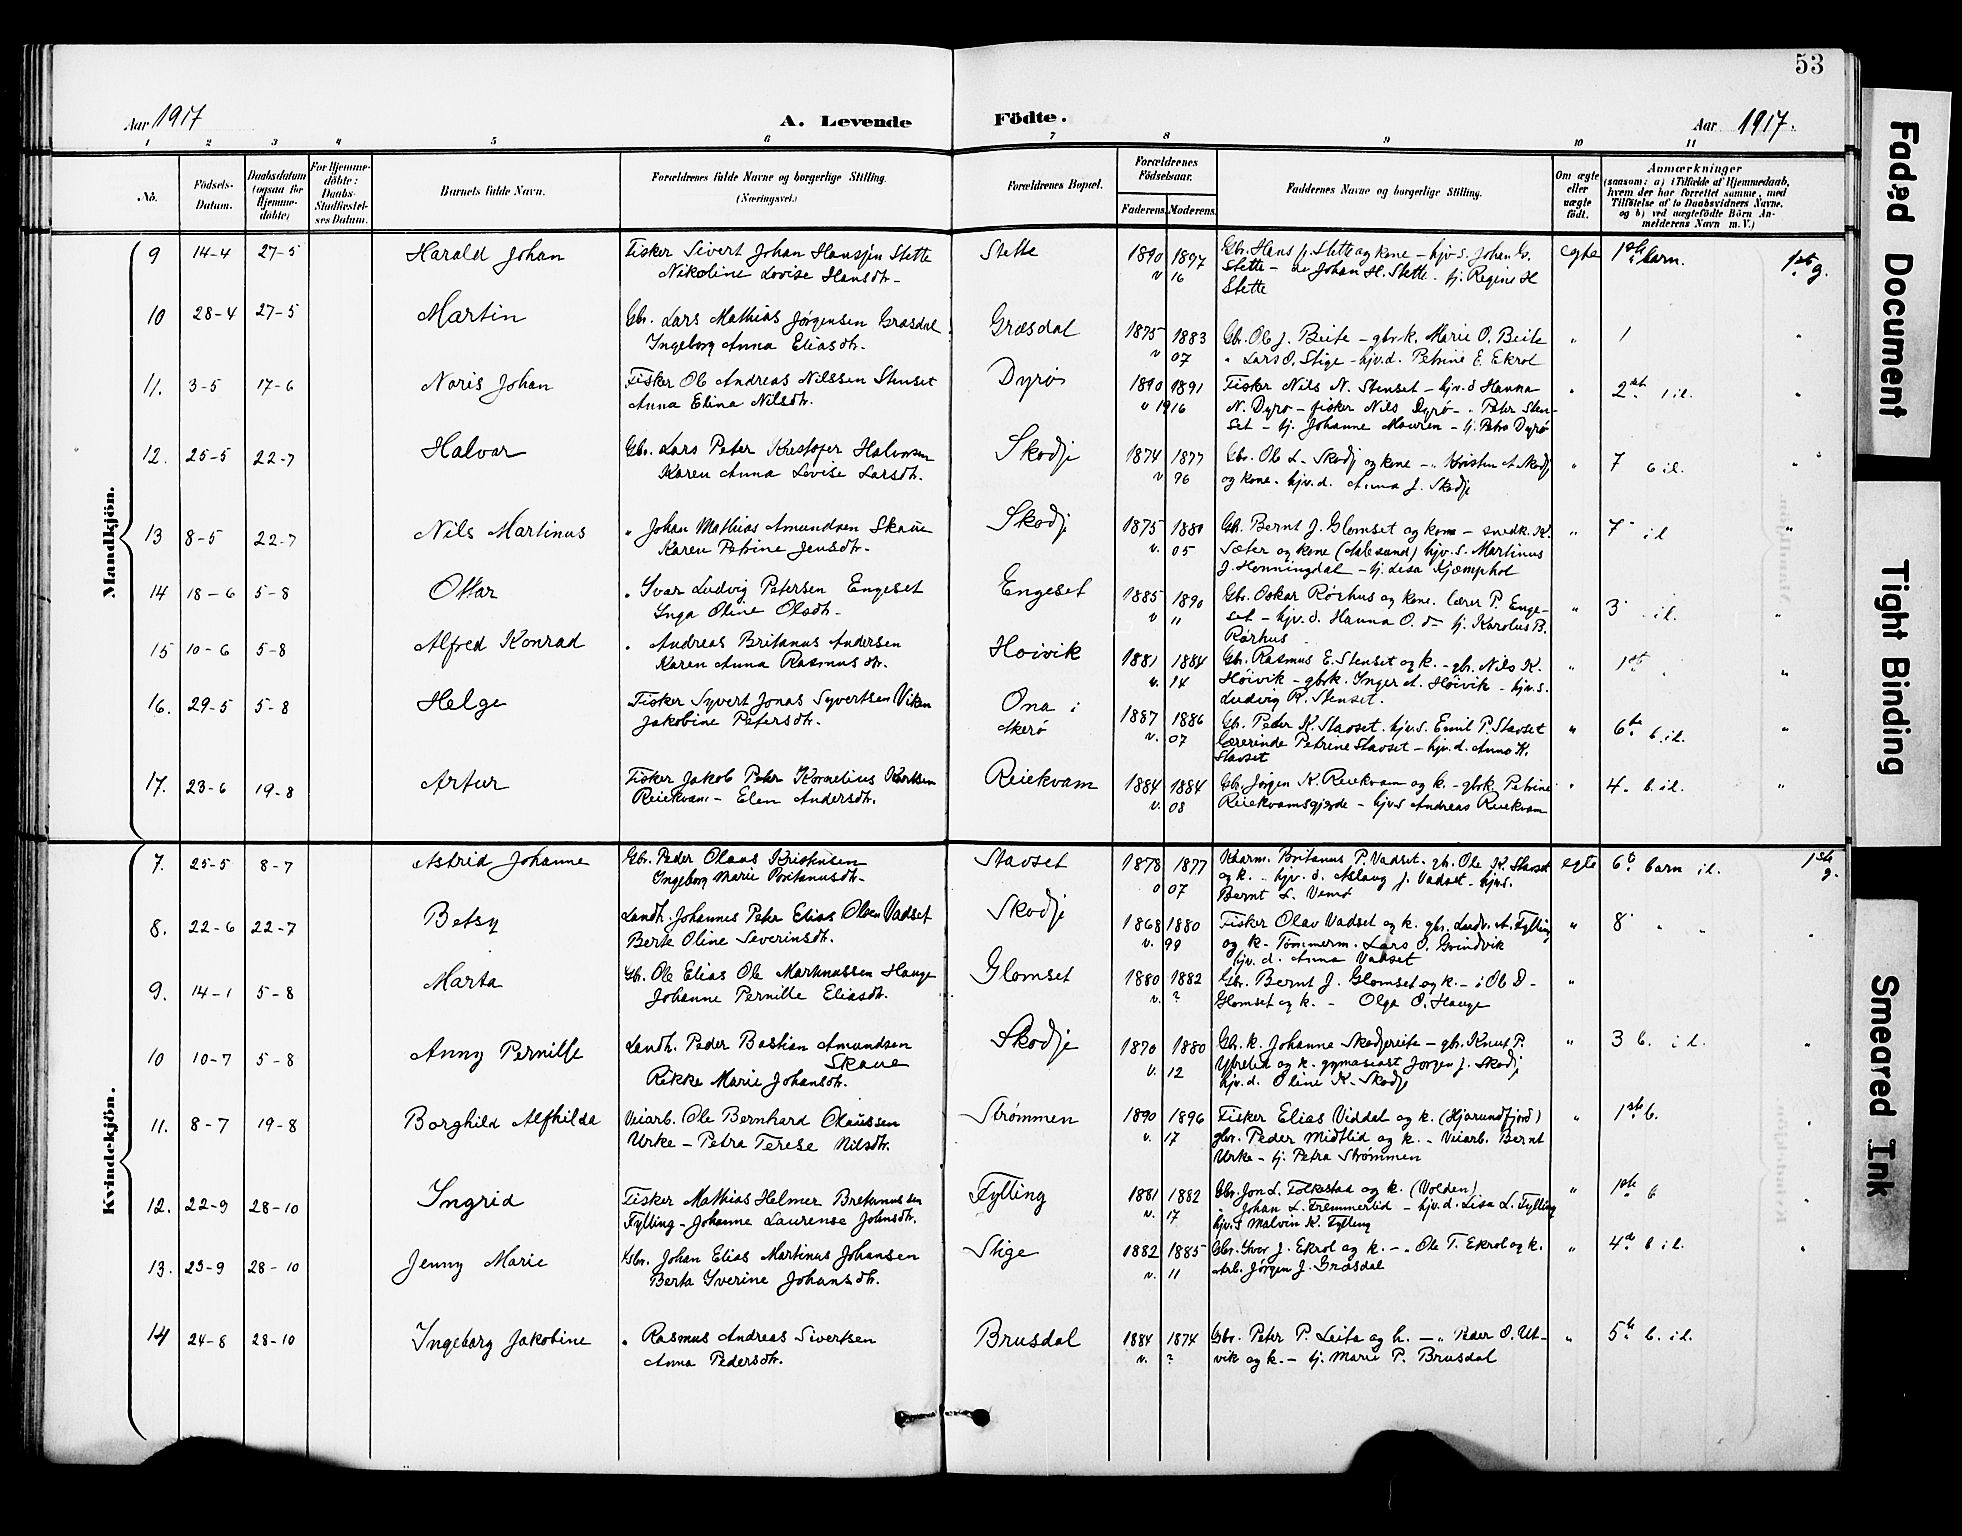 53
Aar 1917
A. Levende
Födte.
Aar 1917.
1 2 3 4 5 6 7 8 9 10 11
No.
Födsels-Datum.
Daabsdatum (ogsaa for Hjemme-döbte)
For Hjemme-döbte: Daabs-Stadfæstel-ses Datum.
Barnets fulde Navn.
Forældrenes fulde Navne og borgerlige Stilling. (Næringsvei.)
Forældrenes Bopæl.
Forældrenes Födselsaar.
Faderens. Moderens.
Faddernes Navne og borgerlige Stilling.
Om ægte eller uægte födt.
Anmærkninger
(saasom: a) i Tilfælde af Hjemmedaab, hvem der har forrettet samme, med Tilföielse af to Daabsvidners Navne, og b) ved uægtefödte Börn An-melderens Navn m. V.)
Mandkjön.
9 14-4 27-5 Harald Johan Fisker Sivert Johan Hansen Stette Stette 1890 1897 Gbr. Hans J. Stette og kone - hjv. s. Johan G. egte 1ste barn. 1ste g.
Nikoline Lovise Hansdtr. v 16 Stette - Johan H. Stette. tj. Regine H
Stette
10 28-4 27-5 Martin Gbr. Lars Mathias Jørgensen Græsdal Græsdal 1875 1883 Gbr. Ole J. Beite - gbrk. Marie O. Beite " 1 "
Ingeborg Anna Eliasdtr. v 07 " Lars O. Stige - hjv. d. Petrine E. Ekrol
11. 3-5 17-6 Noris Johan Fisker Ole Andreas Nilssen Stenset Dyrø 1890 1891 Fisker Nils N. Stenset - hjv. d Hanna " 2det i il. "
Anna Elina Nilsdtr. v 1916 N. Dyrø - fisker Nils Dyrø - " Peter Sten-
set - tj. Johanne Mauren - tj. Petra Dyrø
12. 25-5 22-7 Halvar Gbr. Lars Peter Kristofer Halvorsen Skodje 1874 1877 Gbr. Ole L. Skodj og kone - " Kristen A Skodj " 7 b il. "
Karen Anna Lovise Larsdtr. v 96 og kone - hjv. d. Anna J. Skodje
13 8-5 22-7 Nils Martinus " Johan Mathias Amundsen Skaue Skodje 1875 1880 Gbr. Bernt J. Glomset og kone - snedk. K. " 7 il "
Karen Petrine Jensdtr. v. 05 Sæter og kone (Aalesund) hjv. s. Martinus
J. Honningdal - tj. Lisa Kjæmphol
14 18-6 5-8 Ottar " Ivar Ludvig Petersen Engeset Engeset 1885 1890 Gbr. Oskar Rørhus og kone. Lærer P. Enge- " 3 il. "
Inga Oline Olsdtr. v 11 set - hjv. d. Hanna O. do tj. Karolus B.
Rørhus
15 10-6 5-8 Alfred Konrad " Andreas Britanus Andersen Hoivik 1881 1884 Gbr. Rasmus E. Stenset og k. - gbr. Nils K. " 1ste "
Karen Anna Rasmusdtr. v. 14 Høivik - gbrk. Inger A. Høivik - hjv. s.
Ludvig R. Stenset.
16. 29-5 5-8 Helge Fisker Syvert Jonas Syvertsen Viken Ona i 1887 1886 Gbr. Peder K. Stavset. hjv. s. Emil P. Stavset " 6te b il. "
Jakobine Petersdtr. Akerø v. 07 Lærerinde Petrine Stavset - hjv. d. Anna K.
Stavset
17. 23-6 19-8 Artur Fisker Jakob Peter Kornelius Reiekvam 1884 1884 Gbr. Jørgen K. Reiekvam og k. - gbrk Petrine " 4. b. il. "
Reiekvam - Elen Andersdtr. v. 08 Reiekvamsgjerde - hjv. s Andreas Reiekvam
Kvindekjön.
7. 25-5 8-7 Astrid Johanne Gbr. Peder Olaus Kristensen Stavset 1878 1877 Kbarm. Britanus P. Vadset. gbr. Ole K. Stavset egte 6te barn il. 1ste g.
Ingeborg Marie Britanusdtr. v 07 og k. - hjv. d. Aslaug J. Vadset - hjv. s.
Bernt L. Vemø
8. 22-6 22-7 Betsy Landh. Johannes Peter Elias Olsen Vadset Skodje 1868 1880 Fisker Olav Vadset og k. gbr. Ludv. A. Fylling " 8 " " "
Berte Oline Severinsdtr. v. 99 og k. Tømmerm. Lars O. Grindvik
hjv. d. Anna Vadset
9. 14-1 5-8 Marta Gbr. Ole Elias Ole Martinussen Hauge Glomset 1880 1882 Gbr. Bernt J. Glomset og k. - Ole D- "
Johanne Pernille Eliasdtr. v. ? Glomset og k. - Olga O. Hauge
10 10-7 5-8 Anny Pernille Landh. Peder Bastian Amundsen Skodje 1870 1880 Gbr. k. Johanne Skodjereite - gbr. Knut P. " 3 b. il. "
Skaue v. 12 Ytrelid og k. gymnasiast Jørgen J. Skodj
Rikke Marie Johansdtr. hjv. d. Oline K. Skodje
11. 8-7 19-8 Borghild Alfhilda Veiarb. Ole Bernhard Olaussen Strømmen 1890 1896 Fisker Elias Viddal og k. (Hjørundfjord) " 1ste b. "
Urke - Petra Terese Nilsdtr. v. 17 gbr. Peder Midtlid og k. - Veiarb. Bernt
Urke - tj. Petra Strømmen
12. 22-9 28-10 Ingrid Fisker Mathias Helmer Bretanussen Fylling 1881 1882 Gbr. Jon L. Folkestad og k. (Volden) " 1ste b "
Fylling - Johanne Laurense Johnsdtr. v. 17 " Johan L. Fremmerlid - hjv. d. Lisa L. Fylling
hjv. s Malvin K. Fylling
13. 23-9 28-10 Jenny Marie Gbr. Johan Elias Martinus Johansen Stige 1882 1885 Gbr. Ivar J. Ekrol og k. - " Ole T. Ekrol og k. " 4de b il. "
Berta Iverine Johansdtr. v. 11 Arb. Jørgen J. Græsdal
14 24-8 28-10 Ingeborg Jakobine " Rasmus Andreas Sivertsen Brusdal 1884 1874 Gbr. Peter P. Leite og k. - " Peder O. Ut- " 5te b. il.
Anna Pedersdtr. v. ? vik og k. - tj. Marie P. Brusdal
Faded Document
Tight Binding
Smeared Ink